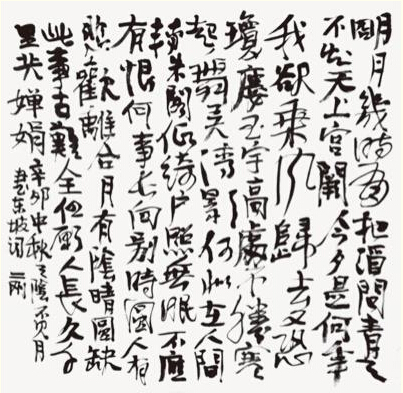 明月幾時有把酒問青天
不知天上宮闕今夕是何年
我欲乘风歸去又恐
瓊樓玉宇高處不勝寒
起舞弄清影何似在人間
轉朱閣低綺户照無眠不應
有恨何事長向别時圓人有
悲歡離合月有陰晴圓缺
此事古難全但願人長久千
里共嬋娟
辛卯中秋天陰不見月
書东坡词